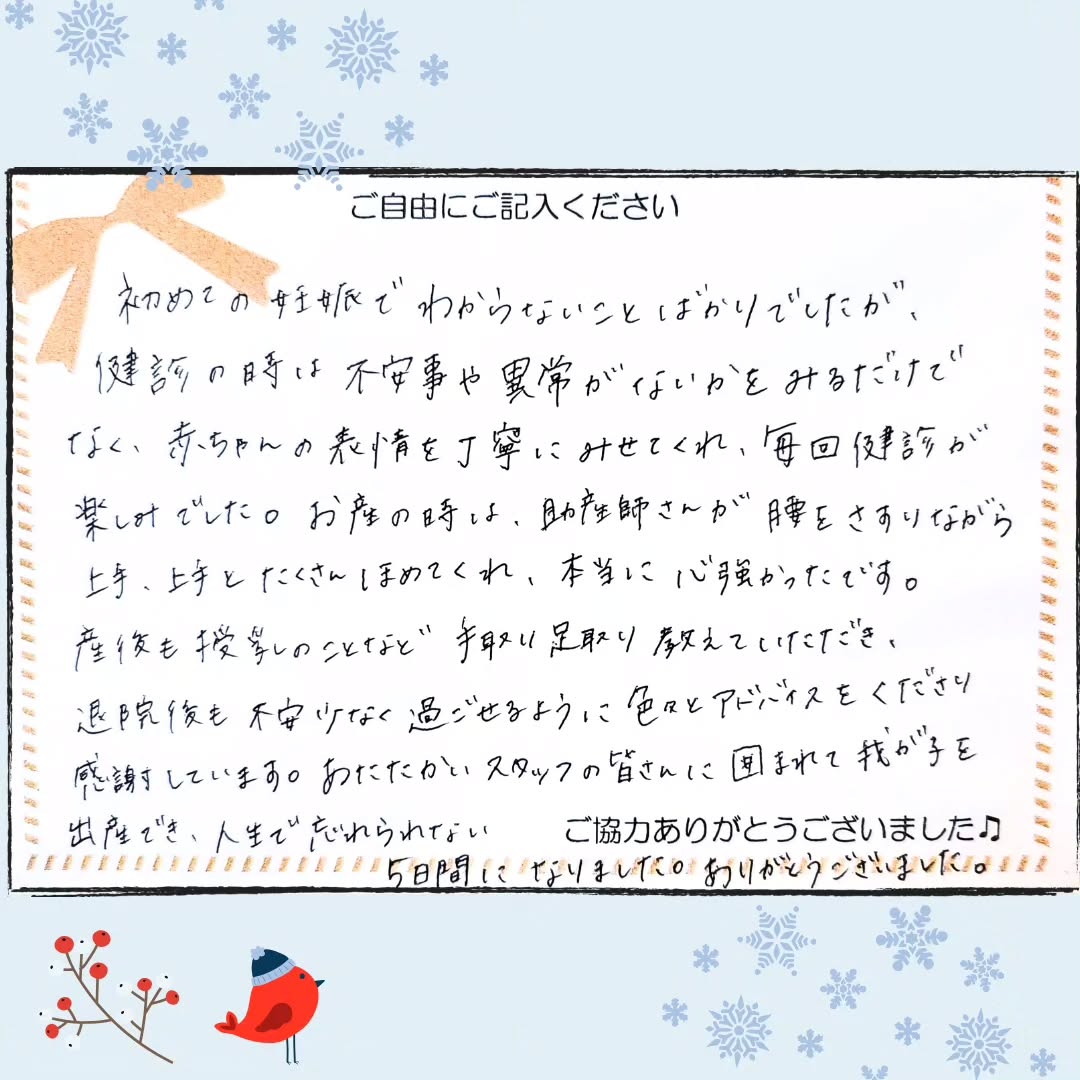 ご自由にご記入ください
初めての妊娠でわからないことばかりでしたが、
健診の時は不安事や異常がないかをみるだけで
なく、赤ちゃんの表情を丁寧にみせてくれ、毎回健診が
楽しみでした。お産の時は、助産師さんが腰をさすりながら
上手、上手とたくさんほめてくれ、本当に心強かったです。
産後も授乳のことなど手取り足取り教えていただき、
退院後も不安少なく過ごせるように色々とアドバイスをくださり
感謝しています。あたたかいスタッフの皆さんに囲まれて我が子を
出産でき、人生で忘れられない
ご協力ありがとうございました♫
5日間になりました。ありがとうございました。